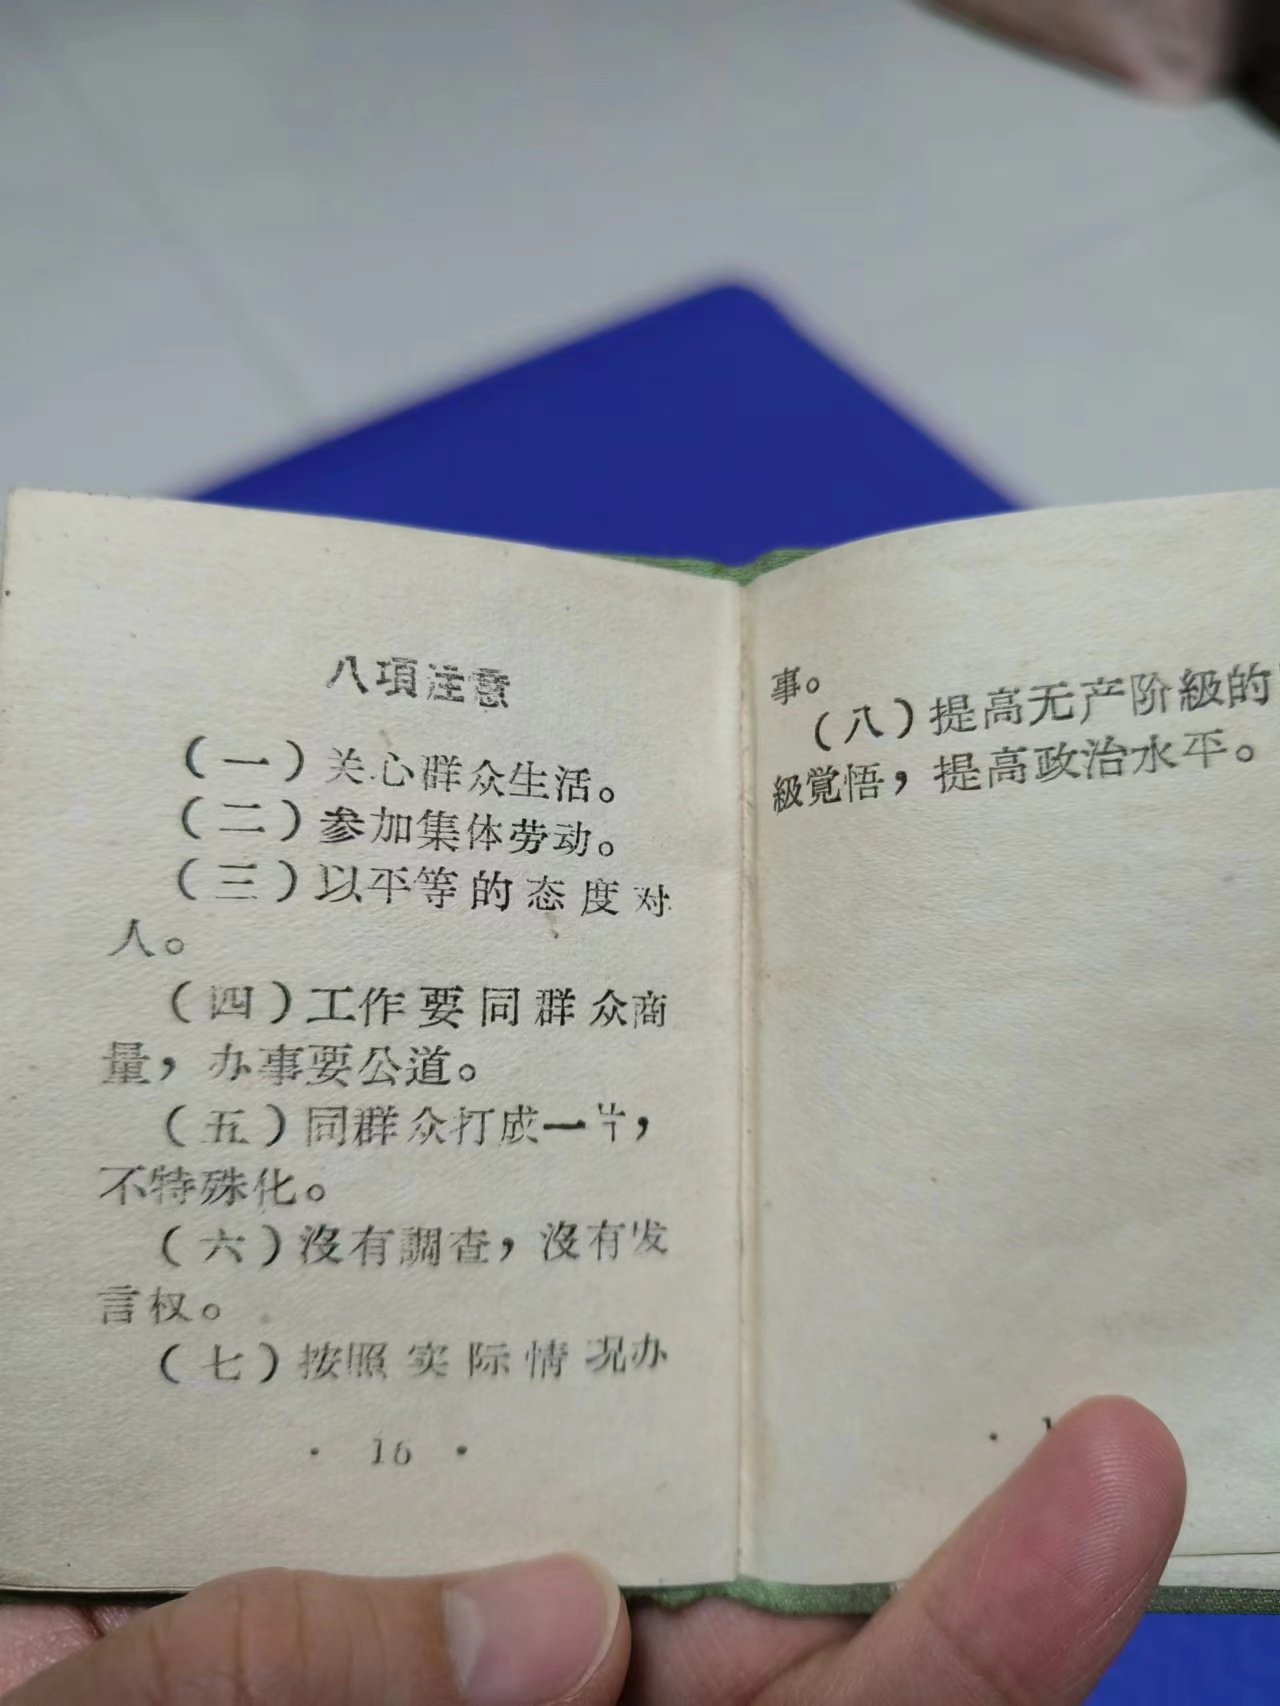 八項注意
（一）关心群众生活。
（二）参加集体劳动。
（三）以平等的态度对
人。
（四）工作要同群众商
量，办事要公道。
（五）同群众打成一片，
不特殊化。
（六）沒有調查，沒有发
言权。
（七）按照实际情况办
· 16 ·
事。
（八）提高无产阶級的
級覚悟，提高政治水平。